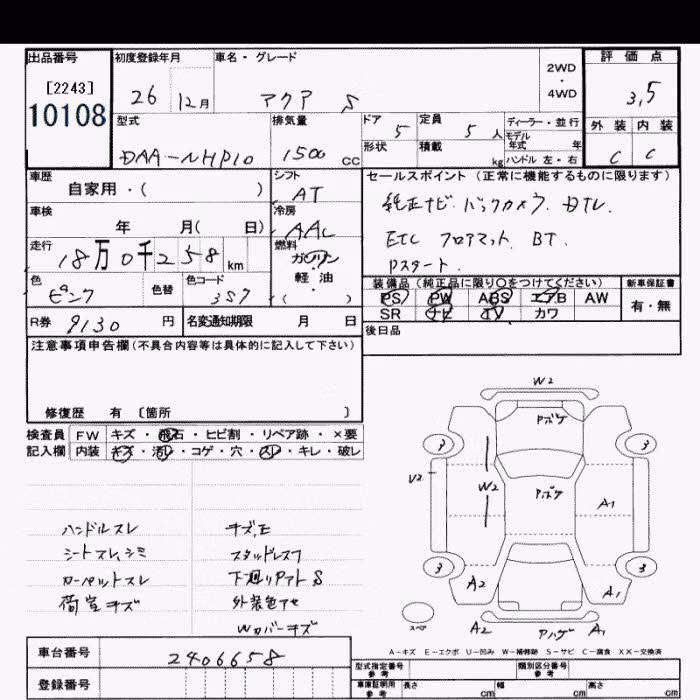 出品番号 初度登録年月 車名・グレード 2WD・4WD 評価点
[2243]
10108
26 12月 アクア S 3,5
型式 排気量 ドア 定員 ディーラー・並行 外装 内装
DAA-NHP10 1500 cc 5 5人 モデル年式 年 C C
形状 積載 kg ハンドル 左・右
車歴 シフト セールスポイント (正常に機能するものに限ります)
自家用・( ) AT
純正ナビ. バックカメラ. DTV.
車検 冷房
年 月( 日) AAC
ETC フロアマット. BT.
走行 燃料
18万0千258km ガソリン
Pスタート.
色 色替 色コード 軽・油
ピンク 3S7 ( )
装備品 (純正品に限り○をつけてください) 新車保証書
PS PW ABS エアB AW 有・無
SR ナビ TV カワ
R券 9130 円 名変通知期限 月 日
後日品
注意事項申告欄(不具合内容等は具体的に記入して下さい)
修復歴 有 〔箇所 〕
検査員 FW キズ・飛石・ヒビ割・リペア跡・×要
記入欄 内装 キズ・汚レ・コゲ・穴・スレ・キレ・破レ
W2
Pボケ
3 3
V2
W2 Pボケ A1
3 3
A2 A1
A2 Pハゲ A1
スペア
ハンドルスレ キズ,E
シートスレ,シミ スタッドレス
カーペットスレ 下廻りアト S
荷室キズ 外装色アセ
Wカバーキズ
A−キズ E−エクボ U−凹み W−補修跡 S−サビ C−腐食 XX−交換済
車台番号 2406658
型式指定番号 参考 類別区分番号 参考
登録番号
車庫証明用 参考 長さ cm 幅 cm 高さ cm